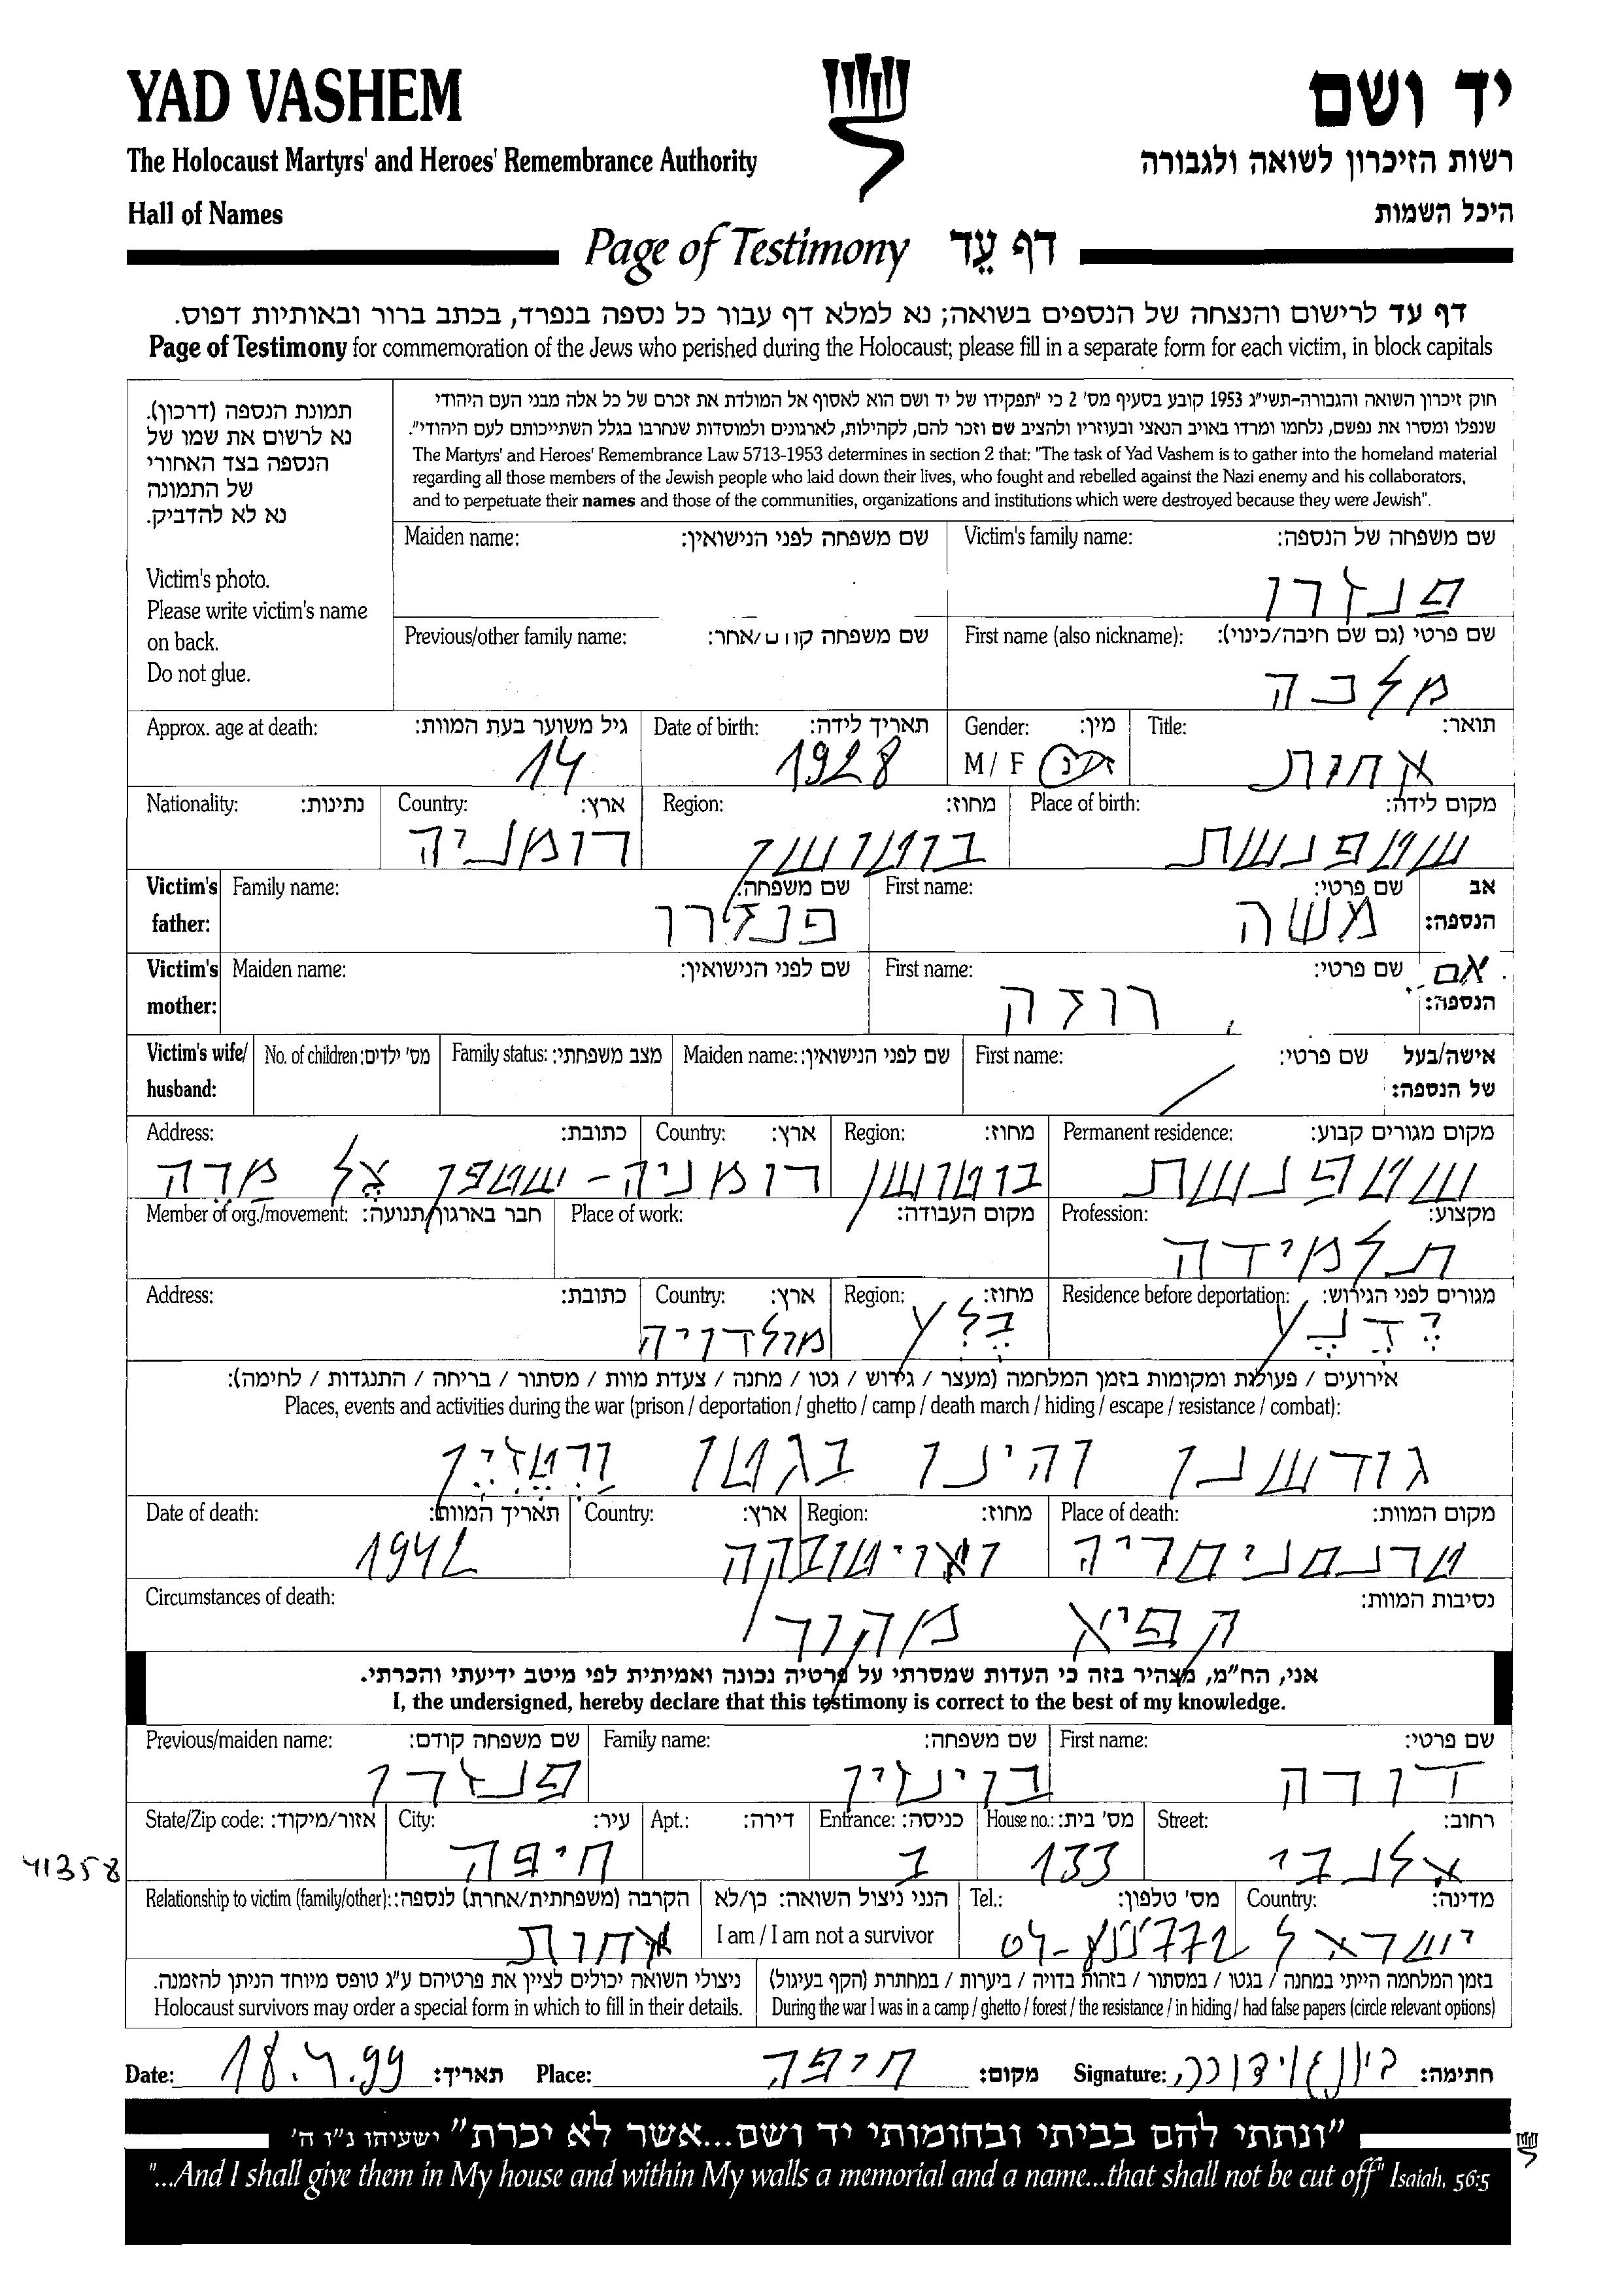 YAD VASHEM
יד ושם
The Holocaust Martyrs' and Heroes' Remembrance Authority
רשות הזיכרון לשואה ולגבורה
Hall of Names
היכל השמות
Page of Testimony דף עֵד
דף עד לרישום והנצחה של הנספים בשואה; נא למלא דף עבור כל נספה בנפרד, בכתב ברור ובאותיות דפוס.
Page of Testimony for commemoration of the Jews who perished during the Holocaust; please fill in a separate form for each victim, in block capitals
תמונת הנספה (דרכון).
נא לרשום את שמו של
הנספה בצד האחורי
של התמונה
נא לא להדביק.
Victim's photo.
Please write victim's name
on back.
Do not glue.
חוק זיכרון השואה והגבורה-תשי״ג 1953 קובע בסעיף מס' 2 כי ״תפקידו של יד ושם הוא לאסוף אל המולדת את זכרם של כל אלה מבני העם היהודי
שנפלו ומסרו את נפשם, נלחמו ומרדו באויב הנאצי ובעוזריו ולהציב שם וזכר להם, לקהילות, לארגונים ולמוסדות שנחרבו בגלל השתייכותם לעם היהודי״.
The Martyrs' and Heroes' Remembrance Law 5713-1953 determines in section 2 that: "The task of Yad Vashem is to gather into the homeland material
regarding all those members of the Jewish people who laid down their lives, who fought and rebelled against the Nazi enemy and his collaborators,
and to perpetuate their names and those of the communities, organizations and institutions which were destroyed because they were Jewish".
Victim's family name: שם משפחה של הנספה:
פנזרו
Maiden name: שם משפחה לפני הנישואין:
First name (also nickname): שם פרטי (גם שם חיבה/כינוי):
מלכה
Previous/other family name: שם משפחה /אחר:
Title: תואר:
אחות
Gender: מין:
M / F
Date of birth: תאריך לידה:
1928
Approx. age at death: גיל משוער בעת המוות:
14
Place of birth: מקום לידה:
שטפנשת
Region: מחוז:
בוטושן
Country: ארץ:
רומניה
Nationality: נתינות:
Victim's father: אב הנספה:
First name: שם פרטי:
משה
Family name: שם משפחה:
פנזרו
Victim's mother: אם הנספה:
First name: שם פרטי:
רוזה
Maiden name: שם לפני הנישואין:
Victim's wife/ husband: אישה/בעל של הנספה:
First name: שם פרטי:
Maiden name: שם לפני הנישואין:
Family status: מצב משפחתי:
No. of children: מס' ילדים:
Permanent residence: מקום מגורים קבוע:
שטפנשת
Region: מחוז:
בוטושן
Country: ארץ:
Address: כתובת:
רומניה - שטפן צל מרה
Profession: מקצוע:
תלמידה
Place of work: מקום העבודה:
Member of org./movement: חבר בארגון/תנועה:
Residence before deportation: מגורים לפני הגירוש:
Region: מחוז:
בלץ
Country: ארץ:
מולדויה
Address: כתובת:
אירועים / פעולות ומקומות בזמן המלחמה (מעצר / גירוש / גטו / מחנה / צעדת מוות / מסתור / בריחה / התנגדות / לחימה):
Places, events and activities during the war (prison / deportation / ghetto / camp / death march / hiding / escape / resistance / combat):
גורשנו והינו בגטו ורטוזין
Place of death: מקום המוות:
טרנסניסטריה
Region: מחוז:
Country: ארץ:
Date of death: תאריך המוות:
1942
Circumstances of death: נסיבות המוות:
קפיא מקור
אני, הח״מ, מצהיר בזה כי העדות שמסרתי על פרטיה נכונה ואמיתית לפי מיטב ידיעתי והכרתי.
I, the undersigned, hereby declare that this testimony is correct to the best of my knowledge.
First name: שם פרטי:
דורה
Family name: שם משפחה:
בוינזין
Previous/maiden name: שם משפחה קודם:
פנזרו
Street: רחוב:
אלנבי
House no.: מס' בית:
133
Entrance: כניסה:
ב
Apt.: דירה:
City: עיר:
חיפה
State/Zip code: אזור/מיקוד:
41358
Country: מדינה:
ישראל
Tel.: מס' טלפון:
I am / I am not a survivor הנני ניצול השואה: כן/לא
Relationship to victim (family/other): הקרבה (משפחתית/אחרת) לנספה:
אחות
בזמן המלחמה הייתי במחנה / בגטו / במסתור / בזהות בדויה / ביערות / במחתרת (הקף בעיגול)
During the war I was in a camp / ghetto / forest / the resistance / in hiding / had false papers (circle relevant options)
ניצולי השואה יכולים לציין את פרטיהם ע״ג טופס מיוחד הניתן להזמנה.
Holocaust survivors may order a special form in which to fill in their details.
Date: 18.4.99 תאריך: Place: חיפה מקום: Signature: חתימה:
״ונתתי להם בביתי ובחומותי יד ושם...אשר לא יכרת״ ישעיהו נ״ו ה'
"...And I shall give them in My house and within My walls a memorial and a name...that shall not be cut off" Isaiah, 56:5